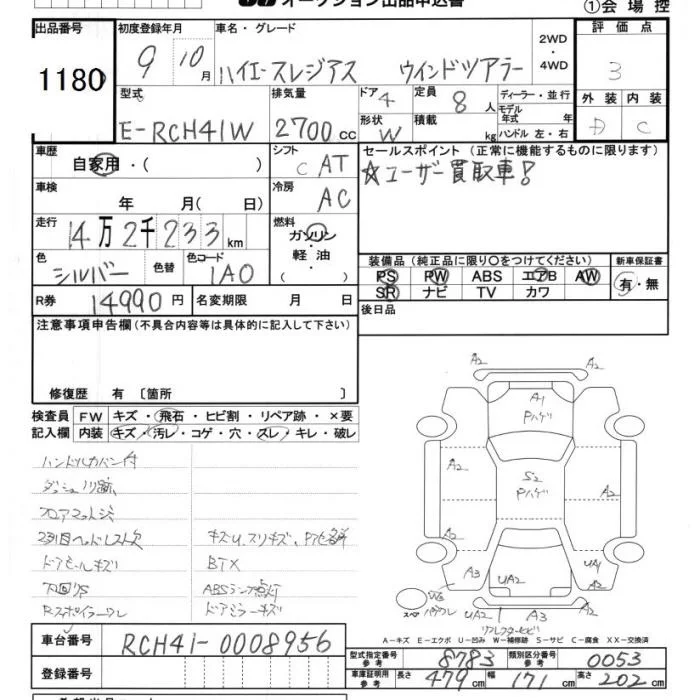 オークション出品申込書
①会場控
出品番号 1180
初度登録年月 9 10月
車名・グレード ハイエースレジアス ウインドツアラー
2WD・4WD
評価点 3
外装 D 内装 C
型式 E-RCH41W
排気量 2700cc
ドア 4 形状 W
定員 8人 積載 kg
ディーラー・並行
モデル年式 年
ハンドル 左・右
車歴 自家用・( )
シフト C AT
車検 年 月(日)
冷房 AC
走行 14万2千233km
燃料 ガソリン 軽油 ( )
色 シルバー 色替 色コード 1A0
R券 14990円 名変期限 月 日
セールスポイント (正常に機能するものに限ります)
☆ユーザー買取車!
装備品(純正品に限り○をつけてください) 新車保証書
PS PW ABS エアB AW 有・無
SR ナビ TV カワ
後日品
注意事項申告欄(不具合内容等は具体的に記入して下さい)
修復歴 有〔箇所 〕
検査員 FW キズ・飛石・ヒビ割・リペア跡・×要
記入欄 内装 キズ・汚レ・コゲ・穴・スレ・キレ・破レ
ハンドルカバー付
ダッシュノリ跡
フロアマットジミ
2列目ヘッドレスト欠
ドアモールキズ
下回りS
Rスポイラーワレ
キズU、スリキズ、Pハゲ多箇所
BTX
ABSランプ点灯
ドアミラーキズ
A2 A2
A1
Pハゲ
A2 A2
S2
Pハゲ
A2 A2
A3 UA2 UA1
スペア
UA2 A3 A2
リフレクターヒビ
A-キズ E-エクボ U-凹み W-補修跡 S-サビ C-腐食 XX-交換済
車台番号 RCH41-0008956
登録番号
型式指定番号 参考 8783 類別区分番号 参考 0053
車庫証明用 参考 長さ 479cm 幅 171cm 高さ 202cm